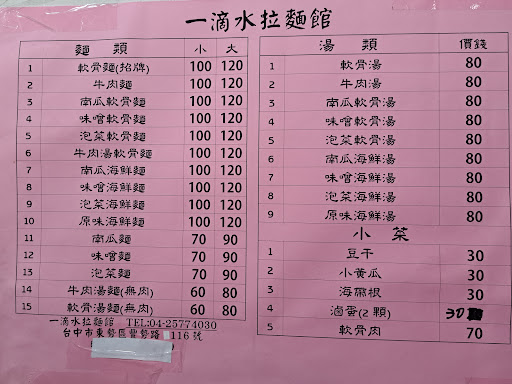 一滴水拉麵館
麵 類 小 大
1 軟骨麵(招牌) 100 120
2 牛肉麵 100 120
3 南瓜軟骨麵 100 120
4 味噌軟骨麵 100 120
5 泡菜軟骨麵 100 120
6 牛肉湯軟骨麵 100 120
7 南瓜海鮮麵 100 120
8 味噌海鮮麵 100 120
9 泡菜海鮮麵 100 120
10 原味海鮮麵 100 120
11 南瓜麵 70 90
12 味噌麵 70 90
13 泡菜麵 70 90
14 牛肉湯麵(無肉) 60 80
15 軟骨湯麵(無肉) 60 80
一滴水拉麵館 TEL:04-25774030
台中市東勢區豐勢路 116 號
湯 類 價錢
1 軟骨湯 80
2 牛肉湯 80
3 南瓜軟骨湯 80
4 味噌軟骨湯 80
5 泡菜軟骨湯 80
6 南瓜海鮮湯 80
7 味噌海鮮湯 80
8 泡菜海鮮湯 80
9 原味海鮮湯 80
小 菜
1 豆干 30
2 小黃瓜 30
3 海帶根 30
4 滷蛋(2 顆) 30
5 軟骨肉 70